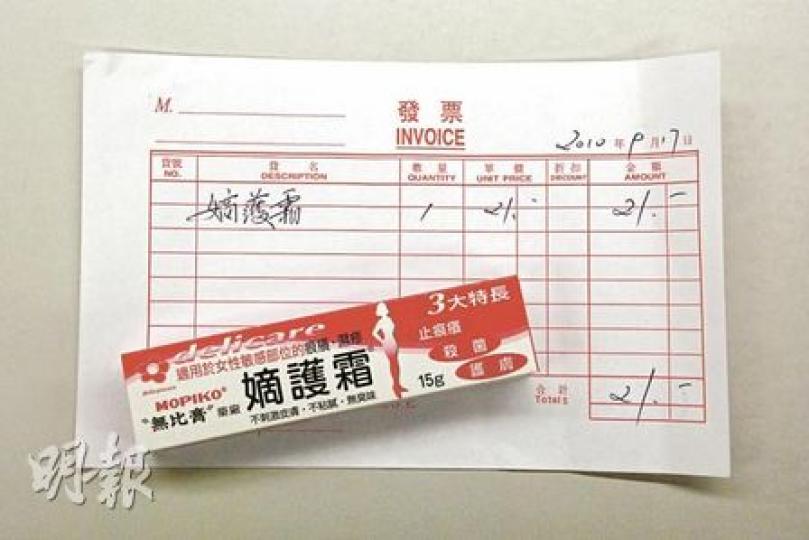 M.
發票
INVOICE
2010年9月17日
貨號 貨名 數量 單價 折扣 金額
NO. DESCRIPTION QUANTITY UNIT PRICE DISCOUNT AMOUNT
嫡護霜 1 21.- 21.-
delicare
適用於女性敏感部位的痕癢·濕疹
MOPIKO®
"無比膏"藥廠
嫡護霜
不刺激皮膚·不粘膩·無臭味
15g
3大特長
止痕癢
殺菌
護膚
合計
Total $ 21.-
明報